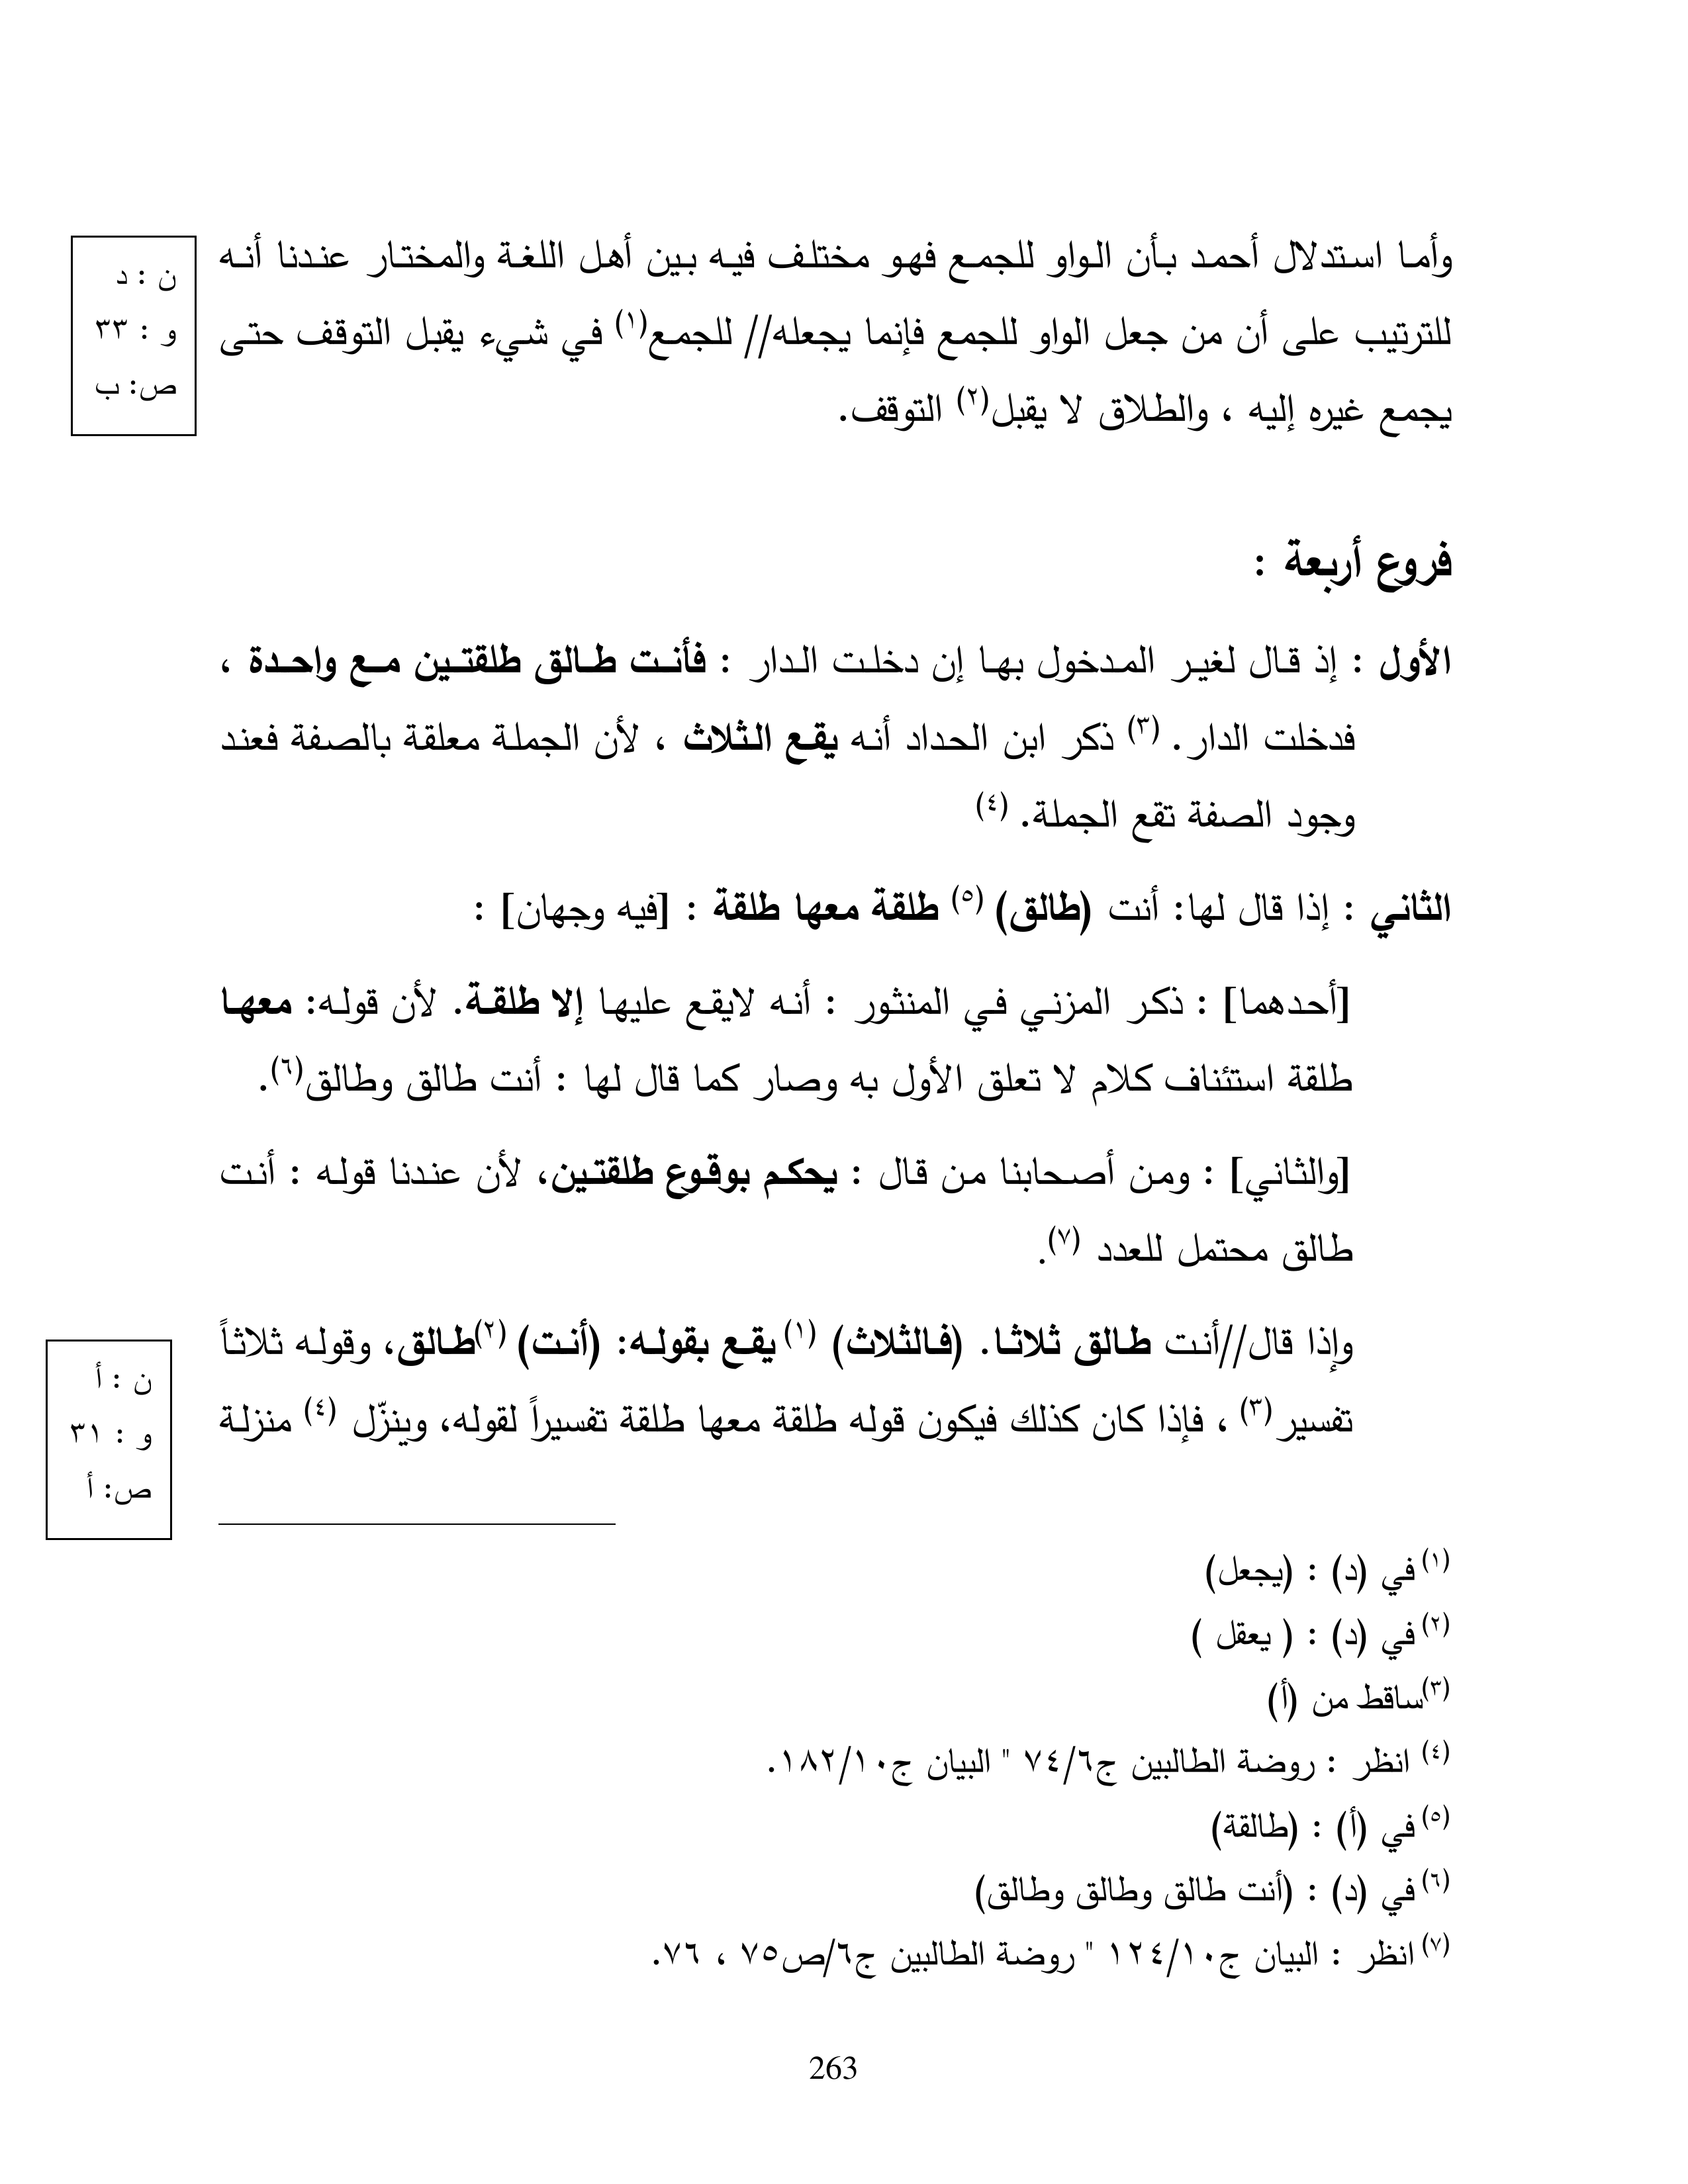 وأما استدلال أحمد بأن الواو للجمع فهو مختلف فيه بين أهل اللغة والمختار عندنا أنه
للترتيب على أن من جعل الواو للجمع فإنما يجعله// للجمع(١) في شيء يقبل التوقف حتى
يجمع غيره إليه ، والطلاق لا يقبل(٢) التوقف.
ن : د
و : ٣٣
ص: ب
فروع أربعة :
الأول : إذ قال لغير المدخول بها إن دخلت الدار : فأنت طالق طلقتين مع واحدة ،
فدخلت الدار. (٣) ذكر ابن الحداد أنه يقع الثلاث ، لأن الجملة معلقة بالصفة فعند
وجود الصفة تقع الجملة. (٤)
الثاني : إذا قال لها: أنت (طالق) (٥) طلقة معها طلقة : [فيه وجهان] :
[أحدهما] : ذكر المزني في المنثور : أنه لايقع عليها إلا طلقة. لأن قوله: معها
طلقة استئناف كلام لا تعلق الأول به وصار كما قال لها : أنت طالق وطالق(٦).
[والثاني] : ومن أصحابنا من قال : يحكم بوقوع طلقتين، لأن عندنا قوله : أنت
طالق محتمل للعدد (٧).
وإذا قال//أنت طالق ثلاثا. (فالثلاث) (١) يقع بقوله: (أنت) (٢)طالق، وقوله ثلاثاً
تفسير(٣) ، فإذا كان كذلك فيكون قوله طلقة معها طلقة تفسيراً لقوله، وينزّل (٤) منزلة
ن : أ
و : ٣١
ص: أ
(١) في (د) : (يجعل)
(٢) في (د) : ( يعقل )
(٣)ساقط من (أ)
(٤) انظر : روضة الطالبين ج٧٤/٦ " البيان ج١٨٢/١٠.
(٥) في (أ) : (طالقة)
(٦) في (د) : (أنت طالق وطالق وطالق)
(٧) انظر : البيان ج١٢٤/١٠ " روضة الطالبين ج٦/ص٧٥ ، ٧٦.
263